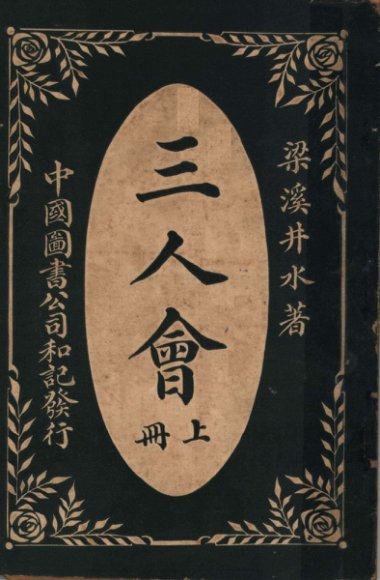 梁溪井水著
三人會
上冊
中國圖書公司和記發行